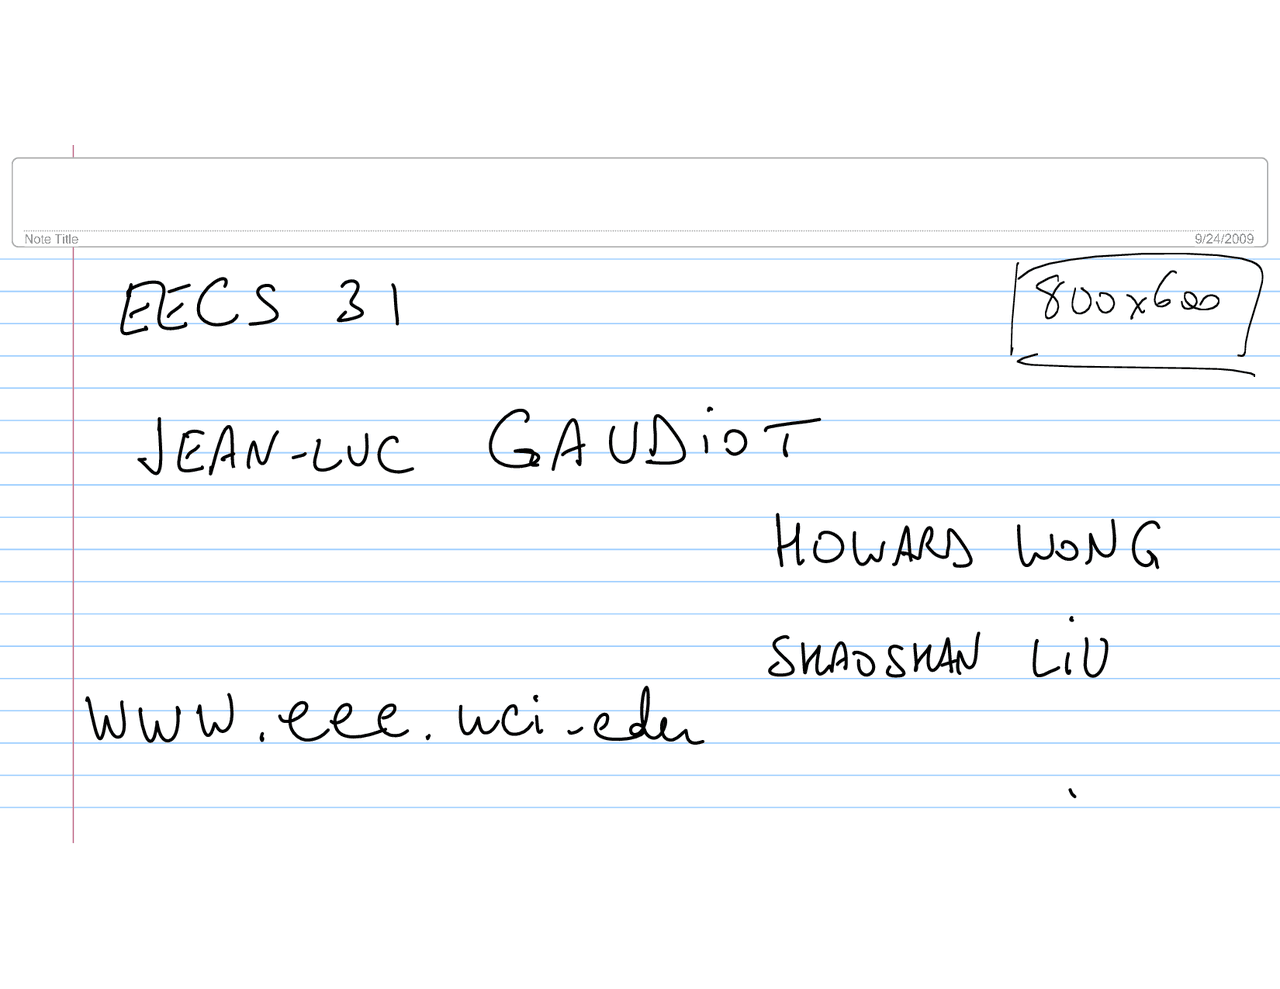 Note Title
9/24/2009
EECS 31
800x600
JEAN-LUC GAUDiOT
HOWARD WONG
SHAOSHAN LiU
www.eee.uci.edu